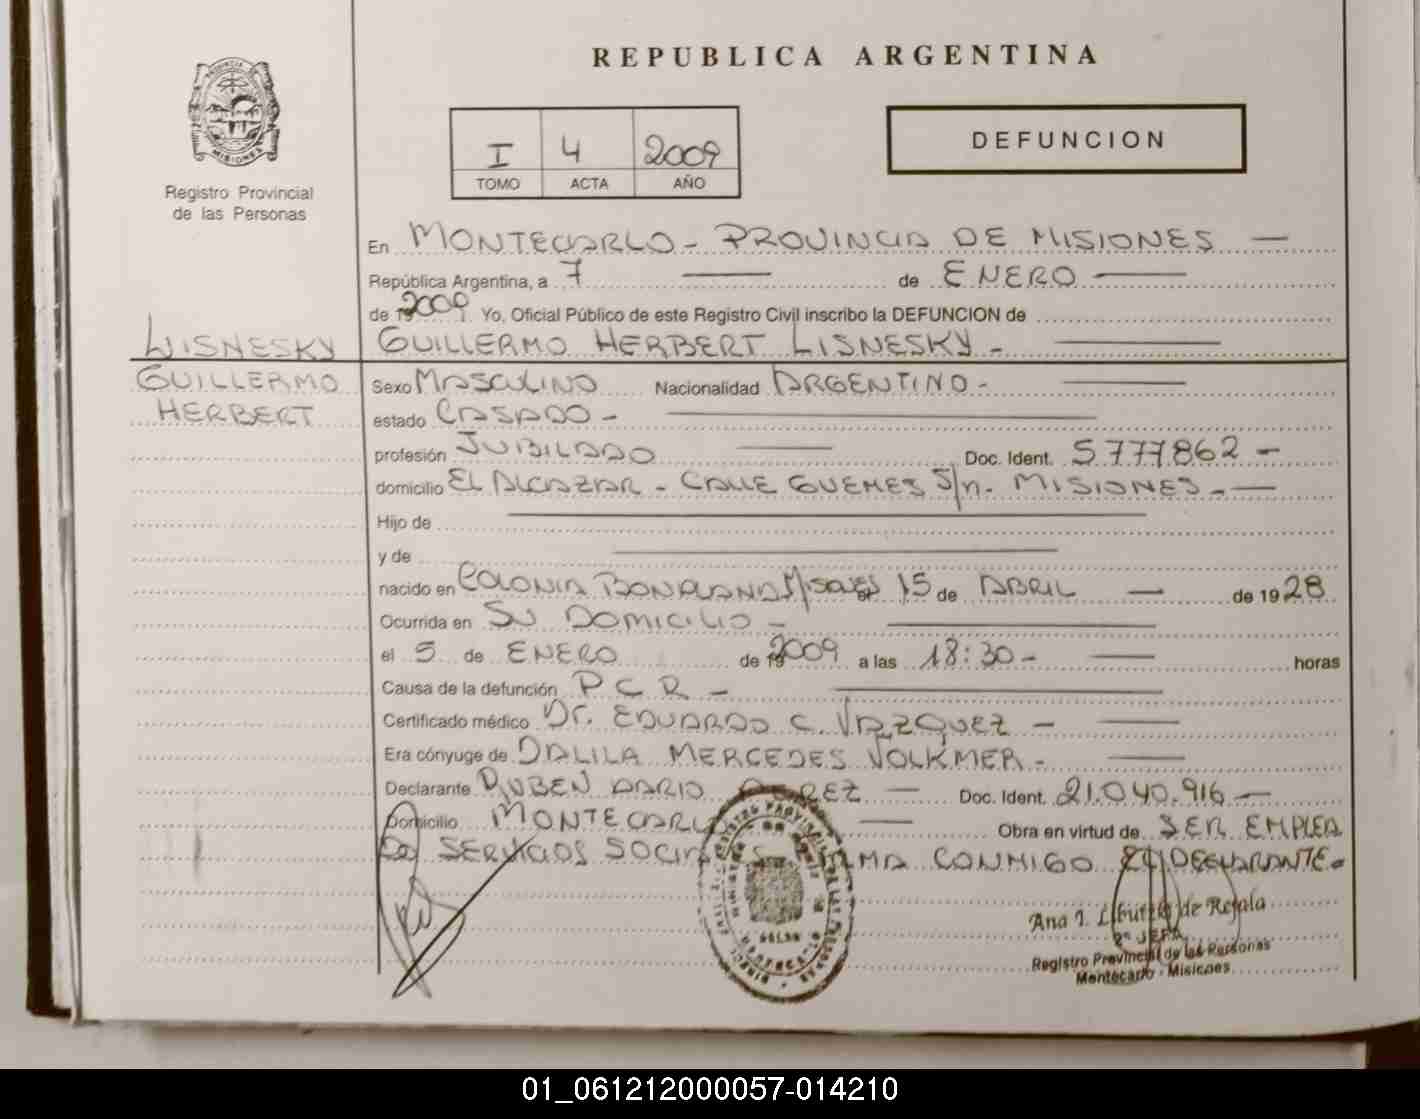 REPUBLICA ARGENTINA
PROVINCIA
MISIONES
Registro Provincial
de las Personas
I 4 2009
TOMO ACTA AÑO
DEFUNCION
En MONTECARLO - PROVINCIA DE MISIONES —
República Argentina, a 7 — de ENERO —
de 19 2009. Yo, Oficial Público de este Registro Civil inscribo la DEFUNCION de
LISNESKY GUILLERMO HERBERT LISNESKY - —
GUILLERMO
HERBERT
Sexo MASCULINO Nacionalidad ARGENTINO - —
estado CASADO - —
profesión JUBILADO — Doc. Ident. 5777862 -
domicilio EL ALCAZAR - CALLE GUEMES S/n. MISIONES - —
Hijo de —
y de —
nacido en COLONIA BONPLAND Misiones el 15 de ABRIL — de 1928
Ocurrida en SU DOMICILIO - —
el 5 de ENERO de 19 2009 a las 18:30 - — horas
Causa de la defunción P C R - —
Certificado médico Dr. EDUARDO C. VAZQUEZ - —
Era cónyuge de DALILA MERCEDES VOLKMER - —
Declarante RUBEN DARIO — Doc. Ident. 21.040.916 —
Domicilio MONTECARLO — Obra en virtud de SER EMPLEA
DO SERVICIOS SOCIALES FIRMA CONMIGO EL DECLARANTE -
Ana I. de Rejala
2º JEFA
Registro Provincial de las Personas
Montecarlo - Misiones
01_061212000057-014210